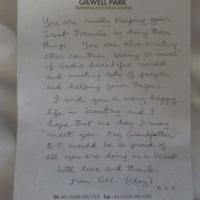 GILWELL PARK
TRAINING AND EVENT CENTRE
You are really keeping your
Scout Promise by doing those
things. You are also visiting
other countries, seeing so much
of God's beautiful world
and meeting lots of people
and helping your Papai.
I wish you a very happy
life in Scouting and I
hope that one day I may
meet you. My Grandfather,
B-P, would be so proud of
all you are doing as a Scout.
With love and thanks
from Gill (Clay)